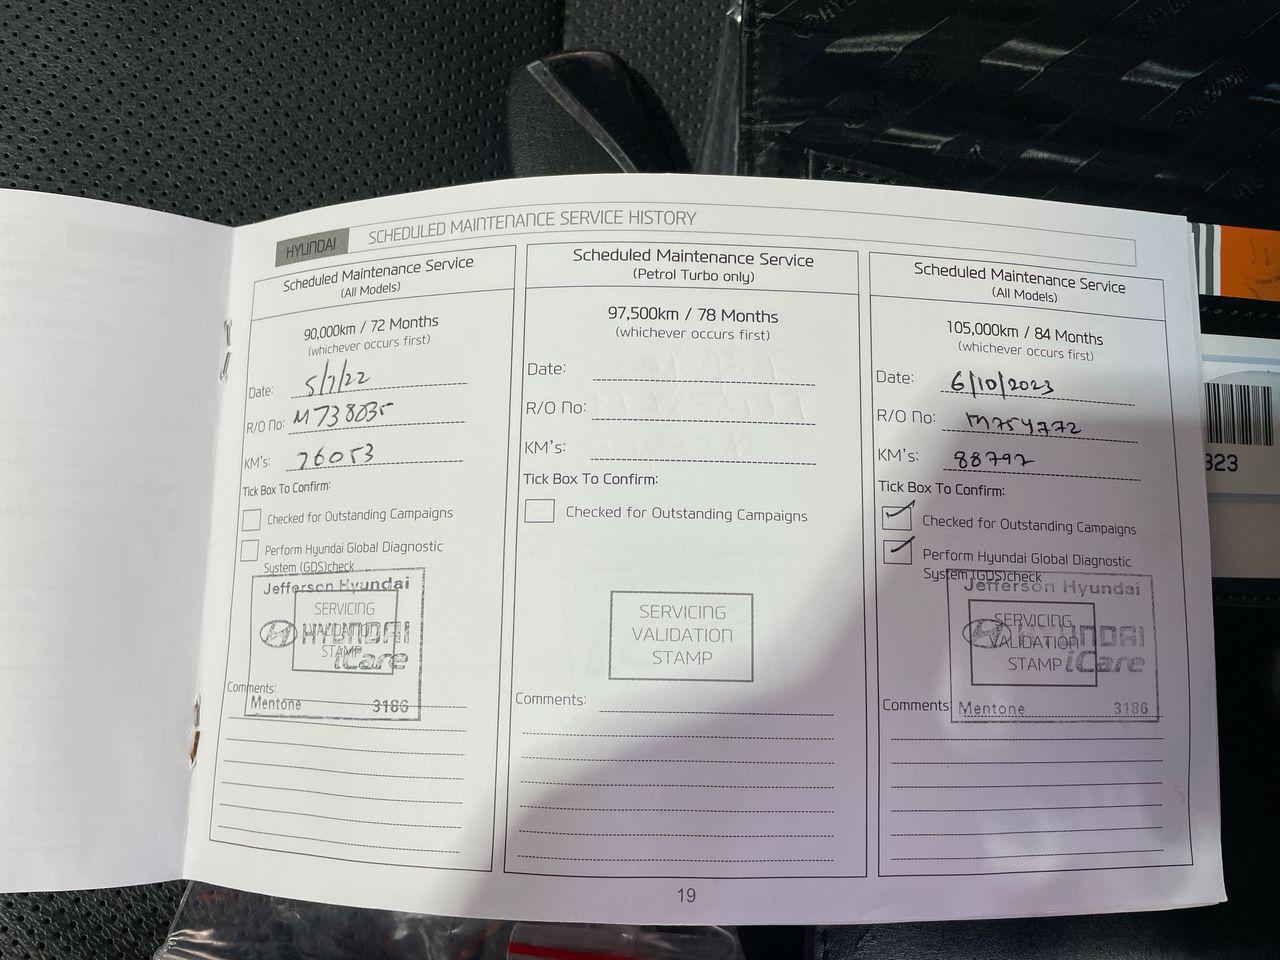 HYUNDAI SCHEDULED MAINTENANCE SERVICE HISTORY
Scheduled Maintenance Service
(All Models)
90,000km / 72 Months
(whichever occurs first)
Date: 5/7/22
R/O No: M738035
KM's: 76053
Tick Box To Confirm:
Checked for Outstanding Campaigns
Perform Hyundai Global Diagnostic
System (GDS)check
Jefferson Hyundai
SERVICING
VALIDATION
STAMP
HYUNDAI
iCare
Comments:
Mentone 3186
Scheduled Maintenance Service
(Petrol Turbo only)
97,500km / 78 Months
(whichever occurs first)
Date:
R/O No:
KM's:
Tick Box To Confirm:
Checked for Outstanding Campaigns
SERVICING
VALIDATION
STAMP
Comments:
Scheduled Maintenance Service
(All Models)
105,000km / 84 Months
(whichever occurs first)
Date: 6/10/2023
R/O No: M754772
KM's: 88792
Tick Box To Confirm:
Checked for Outstanding Campaigns
Perform Hyundai Global Diagnostic
System (GDS)check
Jefferson Hyundai
SERVICING
VALIDATION
STAMP
HYUNDAI
iCare
Comments
Mentone 3186
19
323